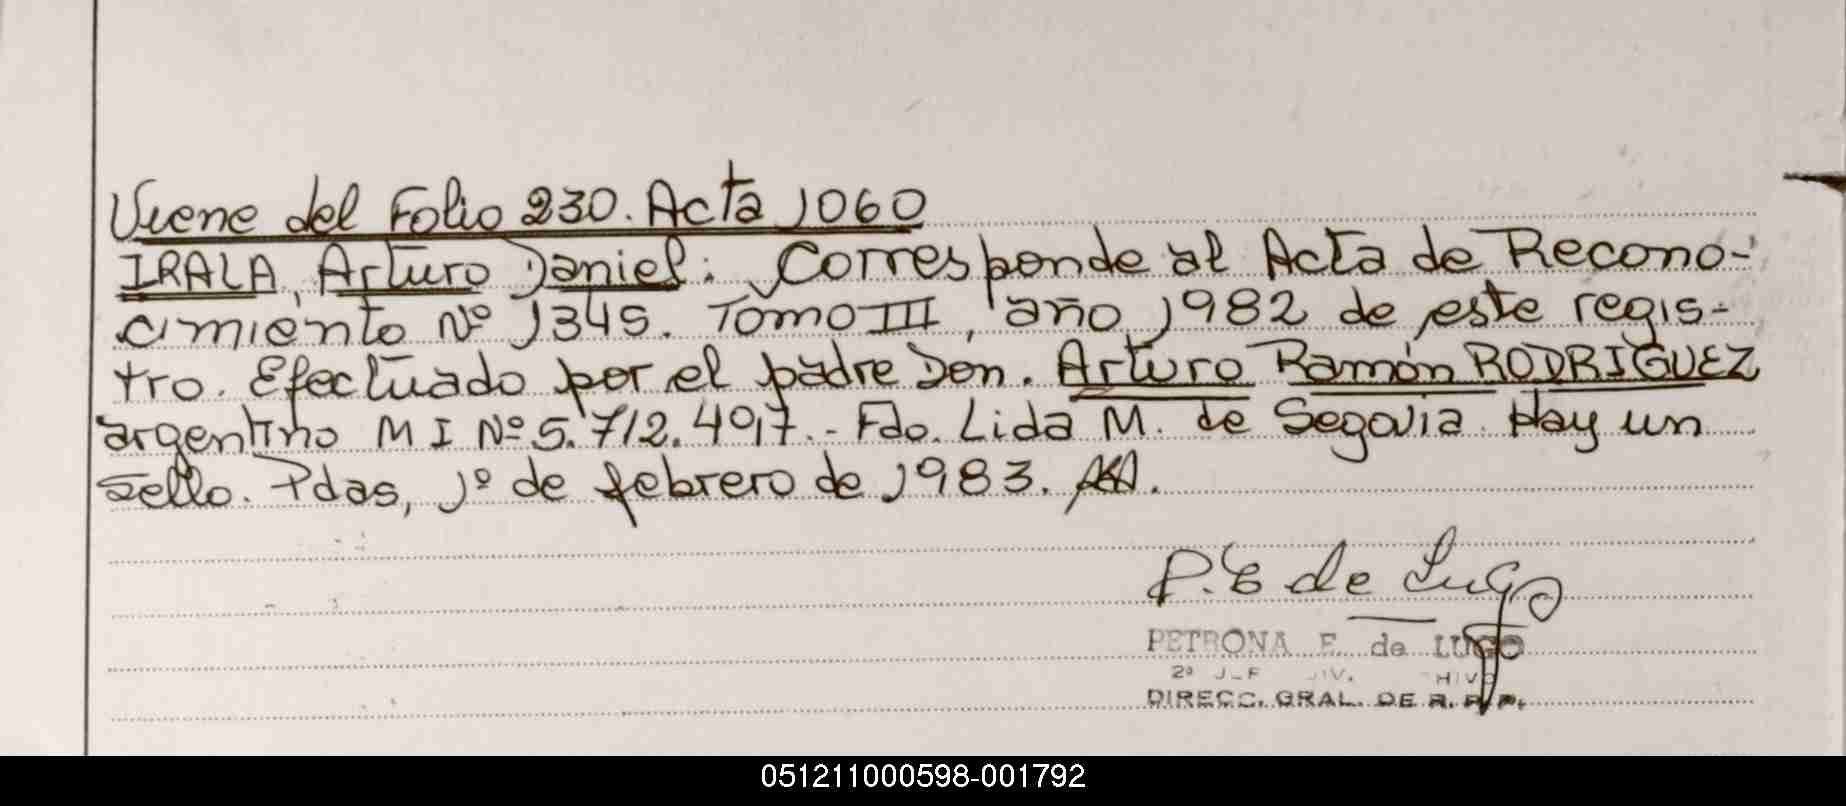 Viene del Folio 230. Acta 1060
IRALA, Arturo Daniel: Corresponde al Acta de Recono-
cimiento Nº 1345. Tomo III, año 1982 de este regis-
tro. Efectuado por el padre Don. Arturo Ramón RODRIGUEZ
argentino M I Nº 5.712.407.- Fdo. Lida M. de Segovia. Hay un
sello. Pdas, 1º de febrero de 1983.
P. E de Lugo
PETRONA E. de LUGO
DIRECC. GRAL. DE R. P. P.
051211000598-001792